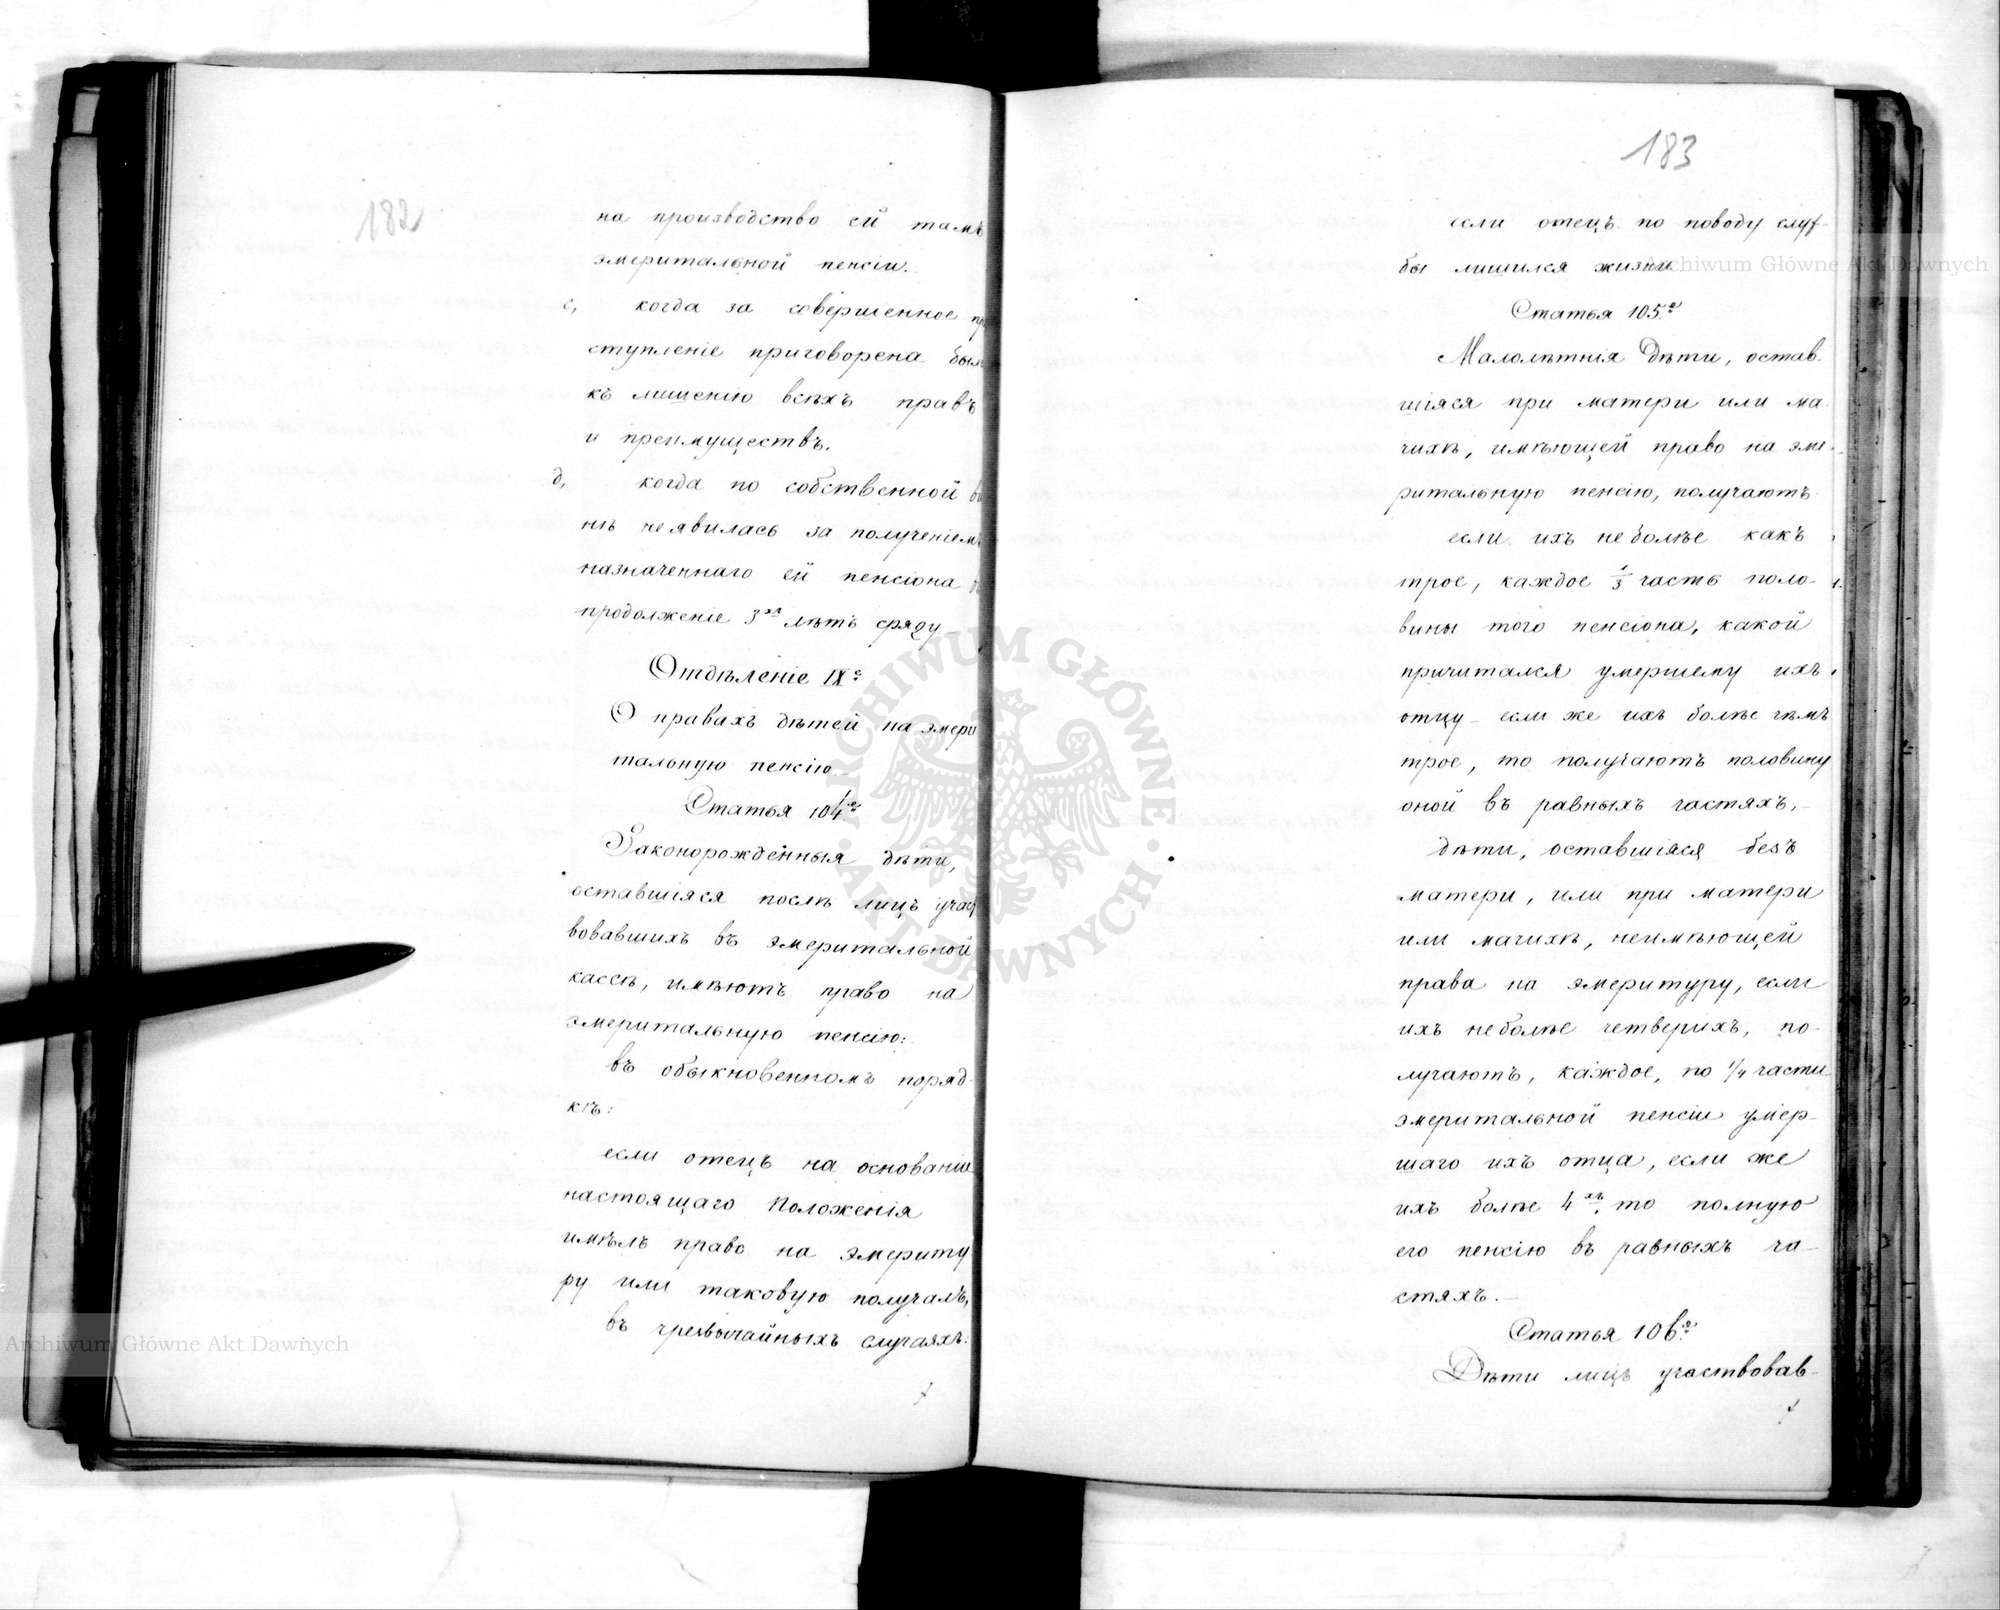 182
на производство ей тамъ
эмеритальной пенсіи.
с, когда за совершенное пр
ступленіе приговорена был
къ лишенію всѣхъ правъ
и преимуществъ.
д, когда по собственной в
нѣ не явилась за полученіемъ
назначеннаго ей пенсіона в
продолженіе 3хъ лѣтъ сряду
Отдѣленіе IХе
О правахъ дѣтей на эмери
тальную пенсію
Статья 104я
Законорожденныя дѣти,
оставшіяся послѣ лицъ участ
вовавшихъ въ эмеритальной
кассѣ, имѣютъ право на
эмеритальную пенсію:
въ обыкновенномъ поряд-
кѣ:
если отецъ на основаніи
настоящаго Положенія
имѣлъ право на эмериту
ру или таковую получалъ,
въ чрезвычайныхъ случаяхъ:
183
если отецъ по поводу служ-
бы лишился жизни
Статья 105я
Малолѣтнія дѣти, остав-
шіяся при матери или ма-
чихѣ, имѣющей право на эме-
ритальную пенсію, получаютъ
если ихъ не болѣе какъ
трое, каждое 1/3 часть поло-
вины того пенсіона, какой
причитался умершему ихъ
отцу – если же ихъ болѣе чѣмъ
трое, то получаютъ половину
оной въ равныхъ частяхъ, –
дѣти, оставшіяся безъ
матери, или при матери
или мачихѣ, неимѣющей
права на эмеритуру, если
ихъ не болѣе четверихъ, по-
лучаютъ, каждое, по 1/4 части
эмеритальной пенсіи умер-
шаго ихъ отца, если же
ихъ болѣе 4хъ, то полную
его пенсію въ равныхъ ча-
стяхъ. –
Статья 106я
Дѣти лицъ участвовав-
Archiwum Główne Akt Dawnych
ARCHIWUM GŁÓWNE · AKT DAWNYCH ·
Archiwum Główne Akt Dawnych